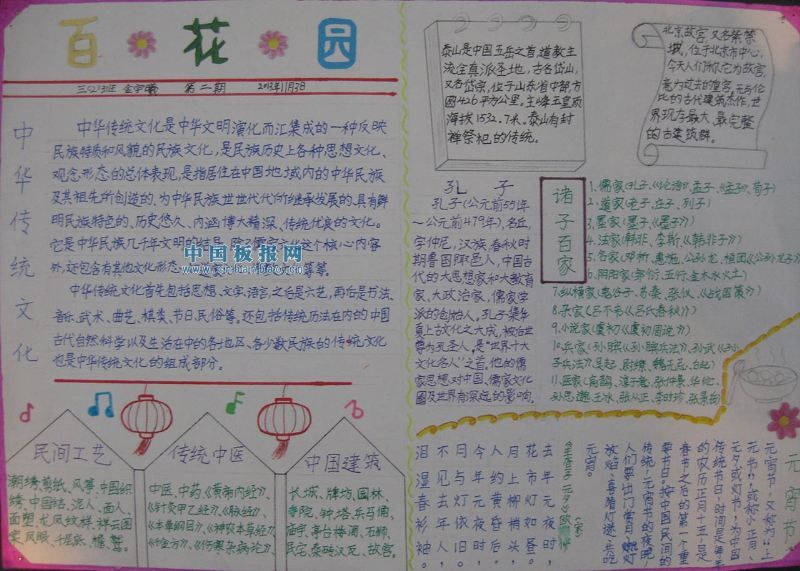 百花园
三(2)班
第二期
2013年11月3日
中华传统文化
中华传统文化是中华文明演化而汇集成的一种反映
民族特质和风貌的民族文化,是民族历史上各种思想文化、
观念形态的总体表现,是指居住在中国地域内的中华民族
及其祖先所创造的,为中华民族世世代代所继承发展的,具有鲜
明民族特色的,历史悠久、内涵博大精深、传统优良的文化。
它是中华民族几千年文明的结晶,除了儒家文化这个核心内容
外,还包含有其他文化形态
等等。
中国板报网
中华传统文化首先包括思想、文字、语言,之后是六艺,再后是书法、
音乐、武术、曲艺、棋类、节日、民俗等。还包括传统历法在内的中国
古代自然科学以及生活在中的各地区、各少数民族的传统文化
也是中华传统文化的组成部分。
民间工艺
潮绣、剪纸、风筝、中国织
绣、中国结、泥人、面人、
面塑、龙凤纹样、祥云图
案、凤眼、千层底、檐、鹫。
传统中医
中医、中药、《黄帝内经》、
《针灸甲乙经》、《脉经》、
《本草纲目》、《神农本草经》、
《千金方》、《伤寒杂病论》、
中国建筑
长城、牌坊、园林、
寺院、钟、塔、兵马俑、
庙宇、亭台楼阁、石狮、
民宅、秦砖汉瓦、故宫。
泰山是中国五岳之首,道教主
流全真派圣地,古名岱山,
又名岱宗,位于山东省中部,方
圆426平方公里。主峰玉皇顶
海拔1532.7米。泰山有封
禅祭祀的传统。
北京故宫,又名紫禁
城,位于北京市中心,
今天人们称它为故宫,
意为过去的皇宫,无与伦
比的古代建筑杰作,世
界现存最大、最完整
的古建筑群。
孔子
孔子(公元前551年
—公元前479年),名丘,
字仲尼,汉族,春秋时
期鲁国陬邑人,中国古
代的大思想家和大教育
家、大政治家,儒家学
派的创始人。孔子集华
夏上古文化之大成,被后世
尊为孔圣人,是“世界十大
文化名人”之首。他的儒
家思想对中国、儒家文化
圈及世界有深远的影响。
诸子百家
1.儒家(孔子、《论语》,孟子、《孟子》,荀子)
2.道家(老子、庄子、列子)
3.墨家(墨子、《墨子》)
4.法家(韩非、李斯、《韩非子》)
5.名家(邓析、惠施、公孙龙、桓团、《公孙龙子》)
6.阴阳家(邹衍、五行、金木水火土)
7.纵横家(鬼谷子、苏秦、张仪、《战国策》)
8.杂家(吕不韦、《吕氏春秋》)
9.小说家(虞初、《虞初周说》)
10.兵家(孙膑、《孙膑兵法》、孙武、《孙
子兵法》、吴起、尉缭、魏无忌、白起)
11.医家(扁鹊、淳于意、张仲景、华佗、
孙思邈、王冰、张从正、李时珍、张景岳)
元宵节
元宵节,又称为“上
元节”,或称小正月、
元夕或灯节,为中国
传统节日,时间是每年
的农历正月十五,是
春节之后的第一个重
要节日。按中国民间的
传统,元宵节的夜晚,
人们要出门赏月、燃灯
放焰、喜猜灯谜、共吃
元宵。
《生查子·元夕》欧阳修(宋)
去年元夜时,
花市灯如昼。
月上柳梢头,
人约黄昏后。
今年元夜时,
月与灯依旧。
不见去年人,
泪湿春衫袖。